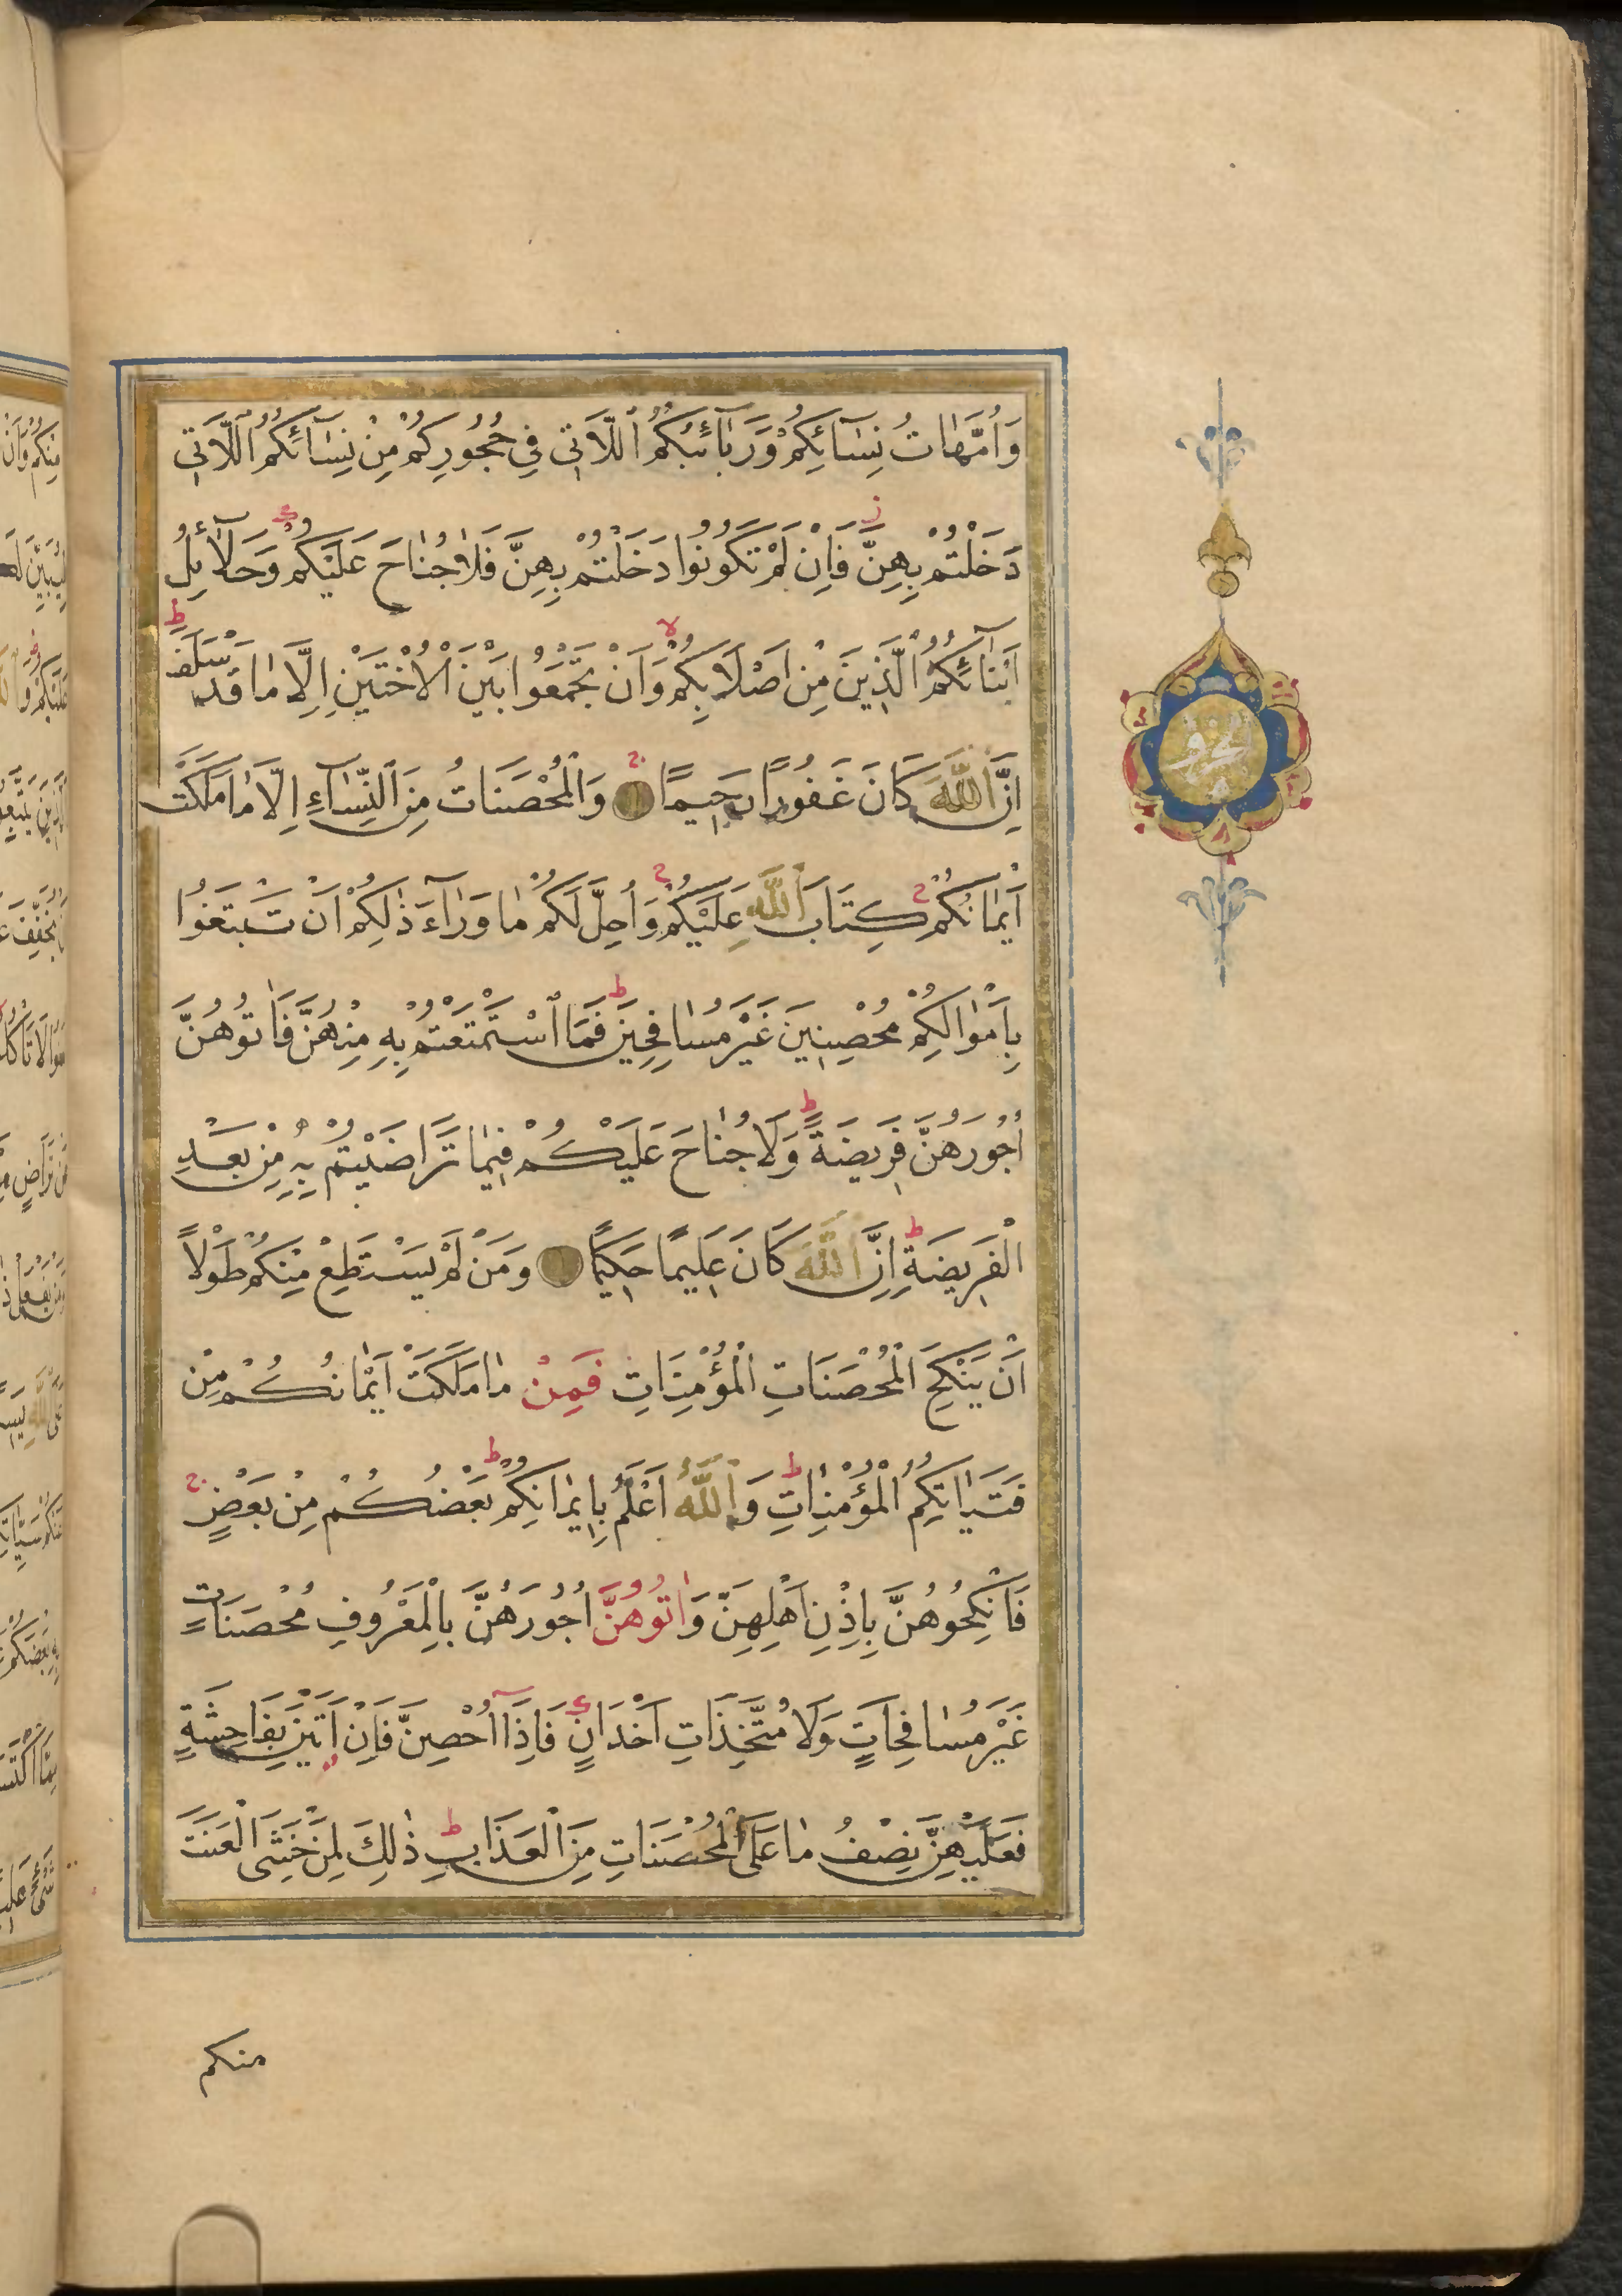 وَاُمَّهَاتُ نِسَآئِكُمْ وَرَبَآئِبُكُمُ ٱللَّاتِي فِي حُجُورِكُمْ مِنْ نِسَآئِكُمُ ٱللَّاتِي
دَخَلْتُمْ بِهِنَّ فَاِنْ لَمْ تَكُونُوا دَخَلْتُمْ بِهِنَّ فَلَا جُنَاحَ عَلَيْكُمْ وَحَلَآئِلُ
اَبْنَآئِكُمُ ٱلَّذِينَ مِنْ اَصْلَابِكُمْ وَاَنْ تَجْمَعُوا بَيْنَ ٱلْاُخْتَيْنِ اِلَّا مَا قَدْ سَلَفَ
اِنَّ ٱللَّهَ كَانَ غَفُورًا رَحِيمًا وَٱلْمُحْصَنَاتُ مِنَ ٱلنِّسَآءِ اِلَّا مَا مَلَكَتْ
اَيْمَانُكُمْ كِتَابَ ٱللَّهِ عَلَيْكُمْ وَاُحِلَّ لَكُمْ مَا وَرَآءَ ذٰلِكُمْ اَنْ تَبْتَغُوا
بِاَمْوَالِكُمْ مُحْصِنِينَ غَيْرَ مُسَافِحِينَ فَمَا ٱسْتَمْتَعْتُمْ بِهِ مِنْهُنَّ فَاٰتُوهُنَّ
اُجُورَهُنَّ فَرِيضَةً وَلَا جُنَاحَ عَلَيْكُمْ فِيمَا تَرَاضَيْتُمْ بِهِ مِنْ بَعْدِ
الْفَرِيضَةِ اِنَّ ٱللَّهَ كَانَ عَلِيمًا حَكِيمًا وَمَنْ لَمْ يَسْتَطِعْ مِنْكُمْ طَوْلًا
اَنْ يَنْكِحَ الْمُحْصَنَاتِ الْمُؤْمِنَاتِ فَمِنْ مَا مَلَكَتْ اَيْمَانُكُمْ مِنْ
فَتَيَاتِكُمُ الْمُؤْمِنَاتِ وَٱللَّهُ اَعْلَمُ بِاِيمَانِكُمْ بَعْضُكُمْ مِنْ بَعْضٍ
فَانْكِحُوهُنَّ بِاِذْنِ اَهْلِهِنَّ وَاٰتُوهُنَّ اُجُورَهُنَّ بِالْمَعْرُوفِ مُحْصَنَاتٍ
غَيْرَ مُسَافِحَاتٍ وَلَا مُتَّخِذَاتِ اَخْدَانٍ فَاِذَآ اُحْصِنَّ فَاِنْ اَتَيْنَ بِفَاحِشَةٍ
فَعَلَيْهِنَّ نِصْفُ مَا عَلَى ٱلْمُحْصَنَاتِ مِنَ الْعَذَابِ ذٰلِكَ لِمَنْ خَشِيَ الْعَنَتَ
منكم